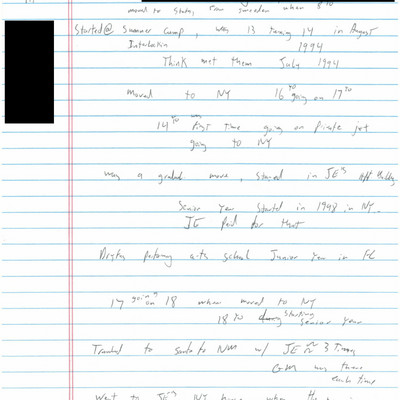 moved to States from Sweden when 8 yo
Started @ Summer Camp, was 13 turning 14 in August
Interlochen 1994
Think met them July 1994
moved to NY 16 yo going on 17 yo
14 yo was first time going on private jet
going to NY
was a gradual move, stayed in JE's apt bldg
Senior year started in 1998 in NY.
JE paid for that
performing arts school Junior year in FL
17 going on 18 when moved to NY
18 yo starting senior year
Traveled to Santa Fe NM w/ JE 2 or 3 times
GM was there
Went to JE's NY home when